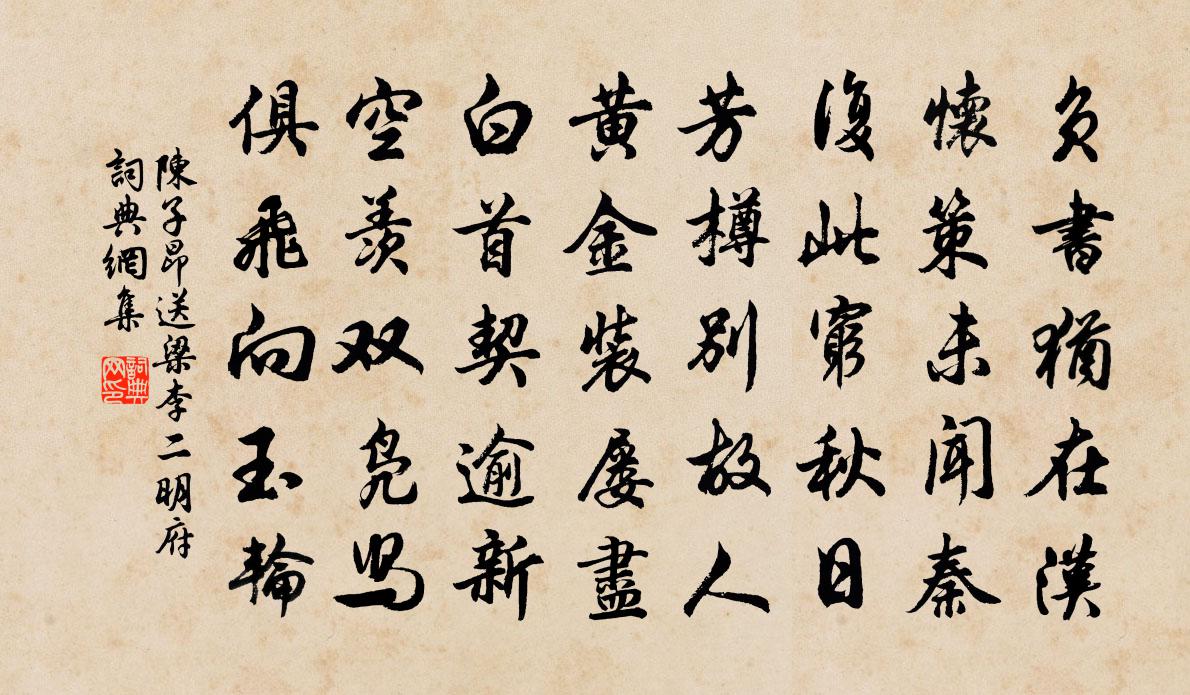 負書猶在漢
懷策未聞秦
復此窮秋日
芳樽別故人
黃金裝屢盡
白首契逾新
空羨双鳧舄
俱飛向玉輪
陳子昂送梁李二明府
詞典網集
詞典网印